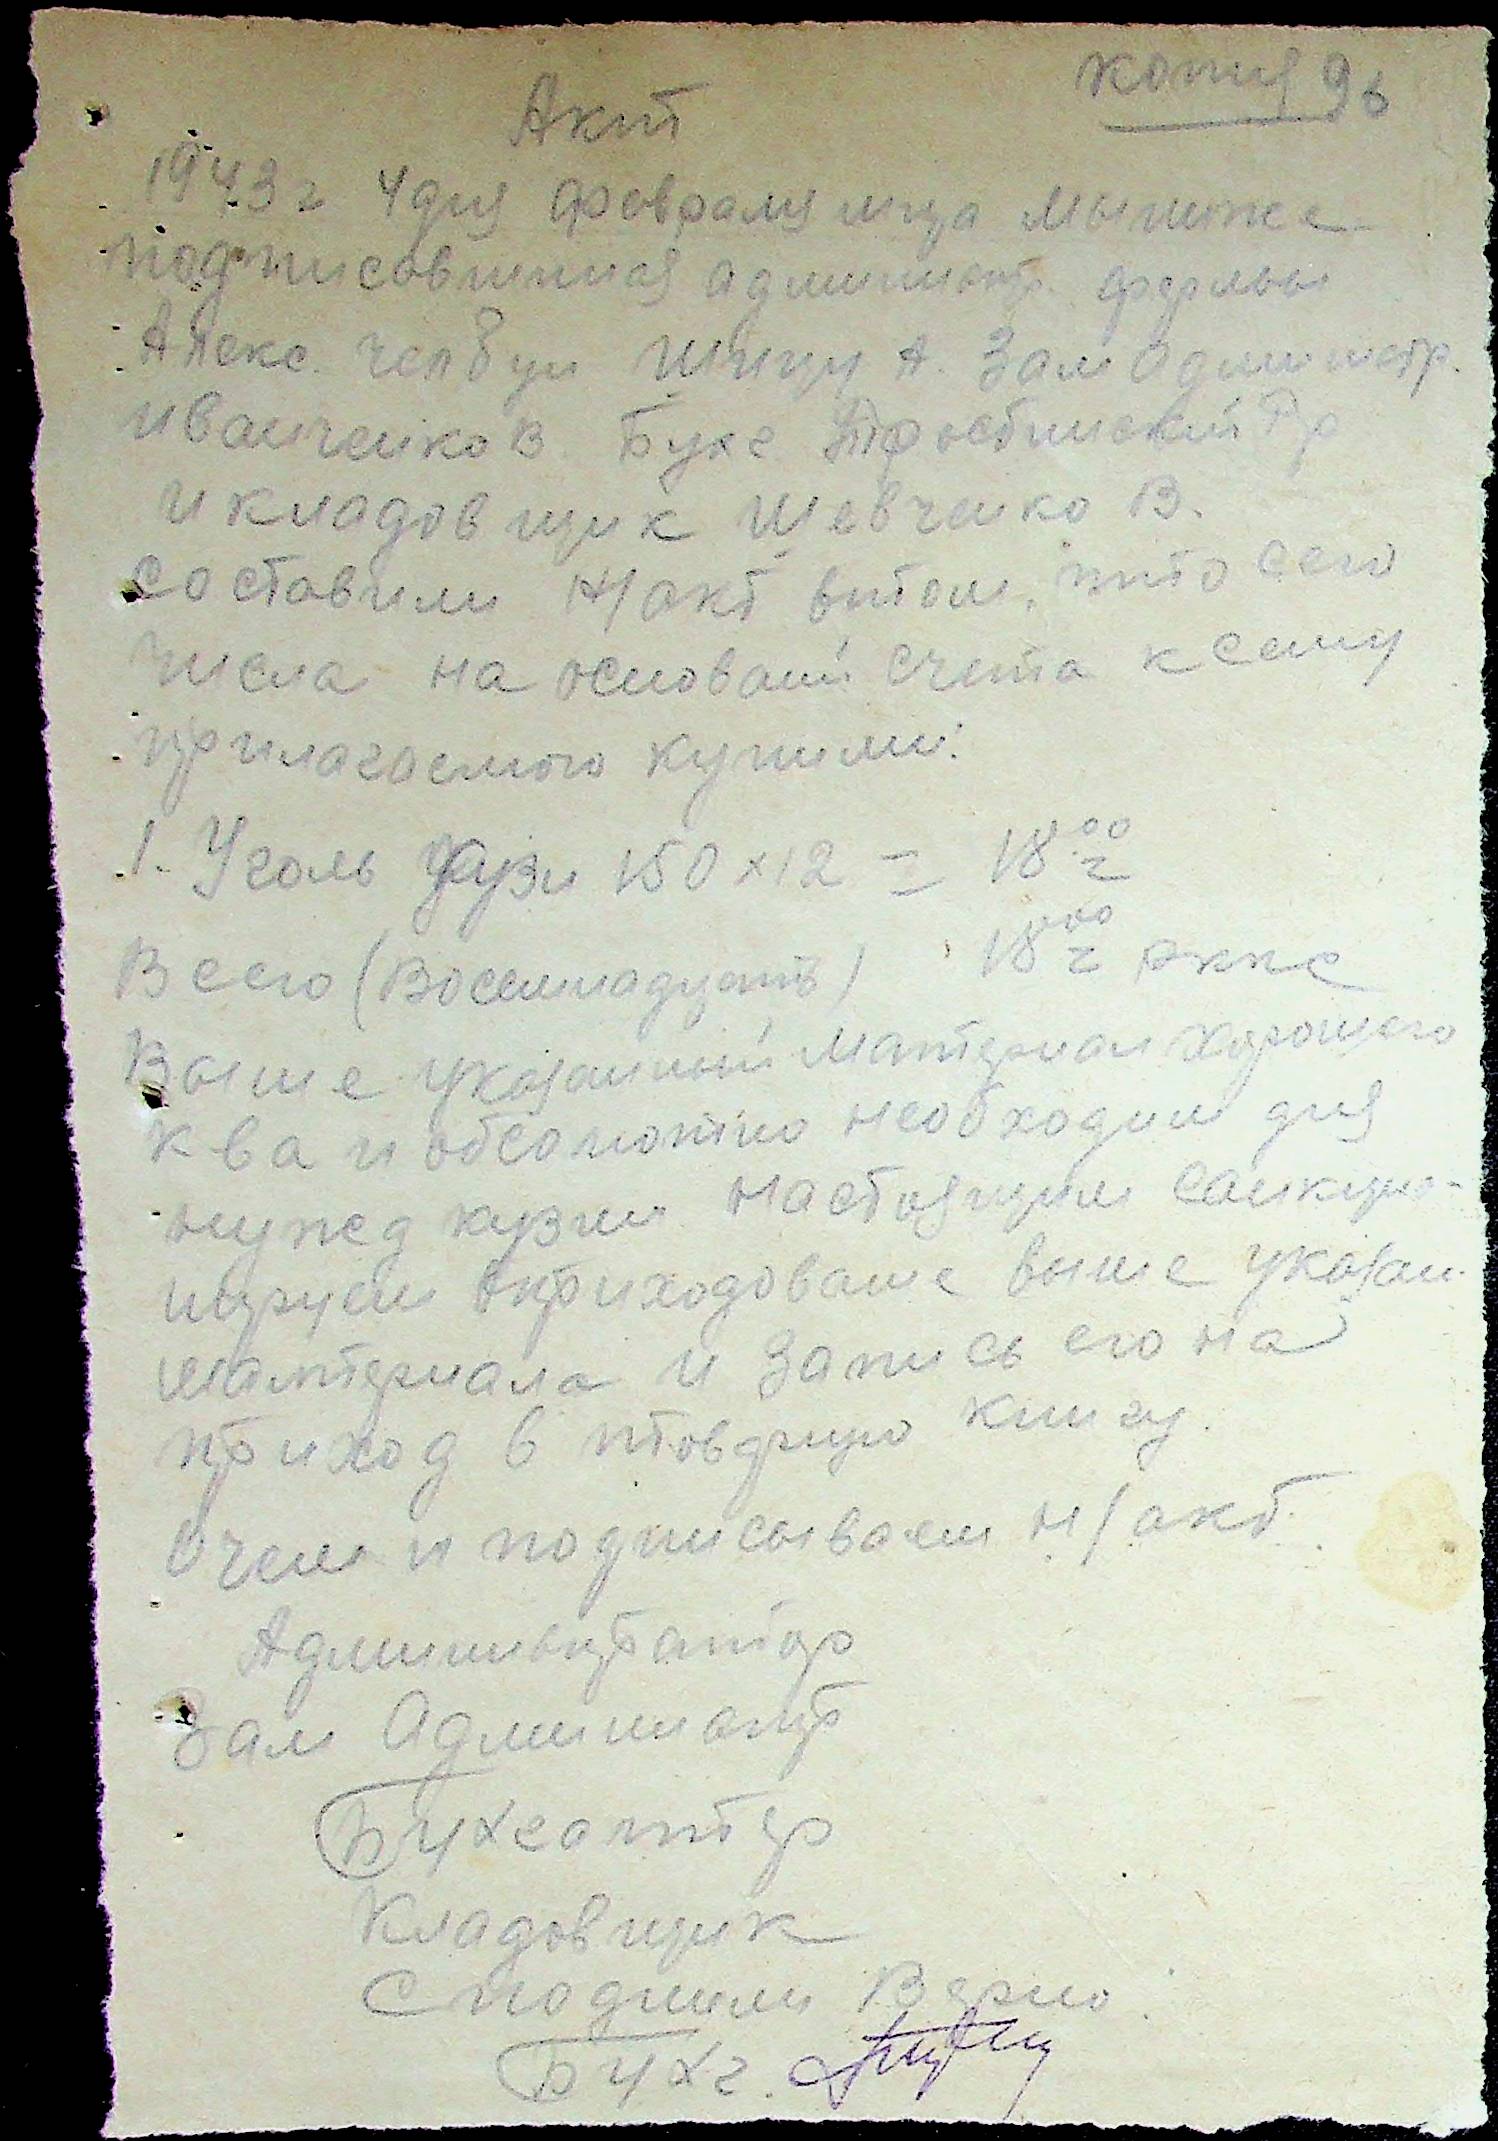 копия 96
Акт
1943 г 4 дня февраля м-ца мы ниже
подписавшиеся админист. фермы
Алекс. Зам Администр.
Иванченко В. Бухг
и кладовщик Шевченко В.
составили н/акт втом, что сего
числа на основании счета к сему
прилагаемого купили:
1. Уголь 150 x 12 = 18 00
Всего (Восемнадцать) 18 00
Выше указанный материал хорошего
к-ва и абсолютно необходим для
нужд кузни настоящим санкцио-
нируем оприходование выше указан.
материала и запись его на
приход в книгу.
О чем и подписываем н/акт.
Администратор
Зам Админист
Бухгалтер
Кладовщик
С подлинным Верно:
Бухг.